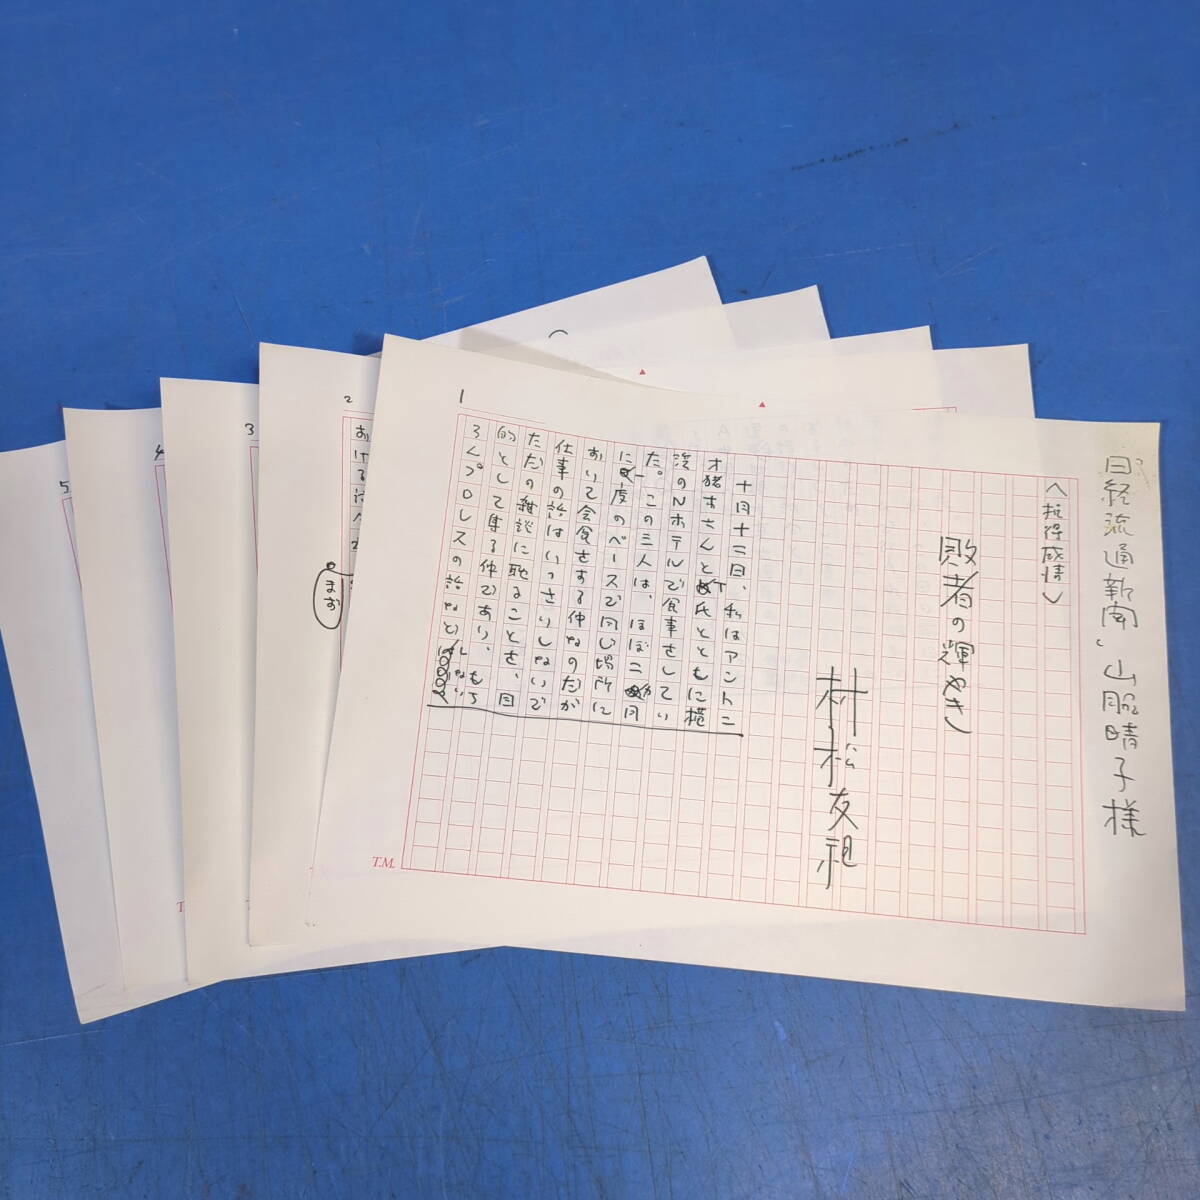 日経流通新聞、山脇晴子様
敗者の輝やき
村松友視
十月十二日、私はアントニ
オ猪木さんとT氏とともに横
浜のNホテルで食事をしてい
た。この三人は、ほぼ二カ月
に一度のペースで同じ場所に
おいて会食をする仲なのだが
仕事の話はいっさいしないで
ただの雑談に耽ることを、目
的として集る仲であり、もち
ろんプロレスの話などしない
1
2
おける
まお
3
4
5
T.M.